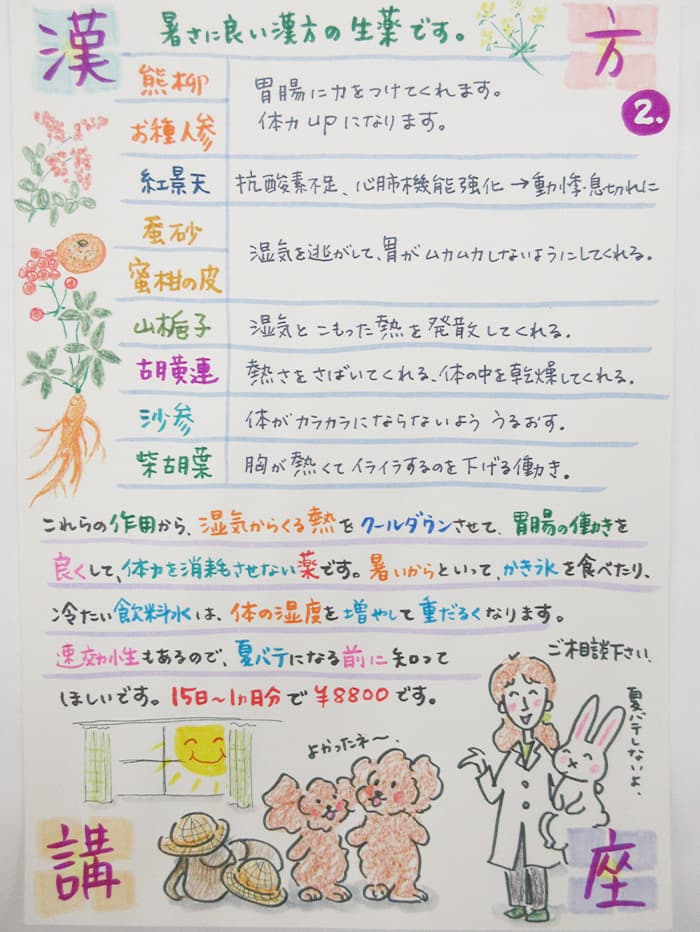 漢方
暑さに良い漢方の生薬です。
2.
熊柳
お種人参
胃腸に力をつけてくれます。
体力upになります。
紅景天
抗酸素不足、心肺機能強化→動悸・息切れに
蚕砂
蜜柑の皮
湿気を逃がして、胃がムカムカしないようにしてくれる。
山梔子
湿気とこもった熱を発散してくれる。
胡黄連
熱さをさばいてくれる、体の中を乾燥してくれる。
沙参
体がカラカラにならないよううるおす。
柴胡葉
胸が熱くてイライラするのを下げる働き。
これらの作用から、湿気からくる熱をクールダウンさせて、胃腸の働きを
良くして、体力を消耗させない薬です。暑いからといって、かき氷を食べたり、
冷たい飲料水は、体の湿度を増やして重だるくなります。
速効性もあるので、夏バテになる前に知って
ほしいです。15日〜1ヵ月分で¥8800です。
ご相談下さい。
夏バテしないよ。
よかったネ〜。
講座